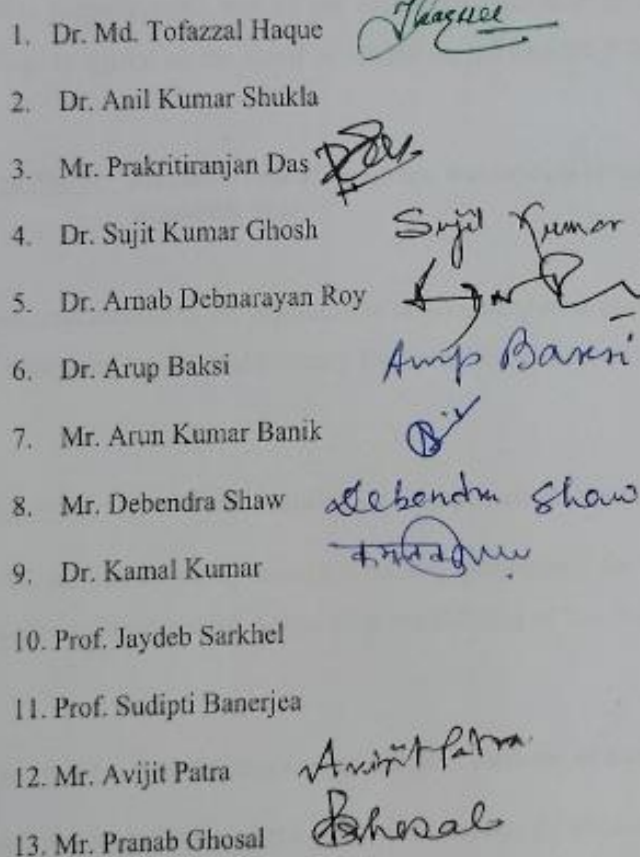 1. Dr. Md. Tofazzal Haque
2. Dr. Anil Kumar Shukla
3. Mr. Prakritiranjan Das
4. Dr. Sujit Kumar Ghosh Sujit Kumar
5. Dr. Arnab Debnarayan Roy
6. Dr. Arup Baksi Arup Baksi
7. Mr. Arun Kumar Banik
8. Mr. Debendra Shaw Debendra Shaw
9. Dr. Kamal Kumar
10. Prof. Jaydeb Sarkhel
11. Prof. Sudipti Banerjea
12. Mr. Avijit Patra Avijit Patra
13. Mr. Pranab Ghosal Ghosal